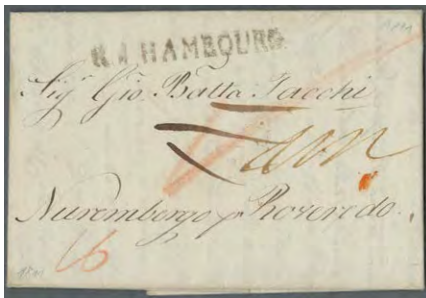 R.4 HAMBOURG
Sig.r Gio. Batta Tacchi
Nurembergo p Roveredo.
16